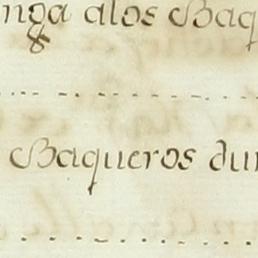 nga alos Baq
Baqueros dur